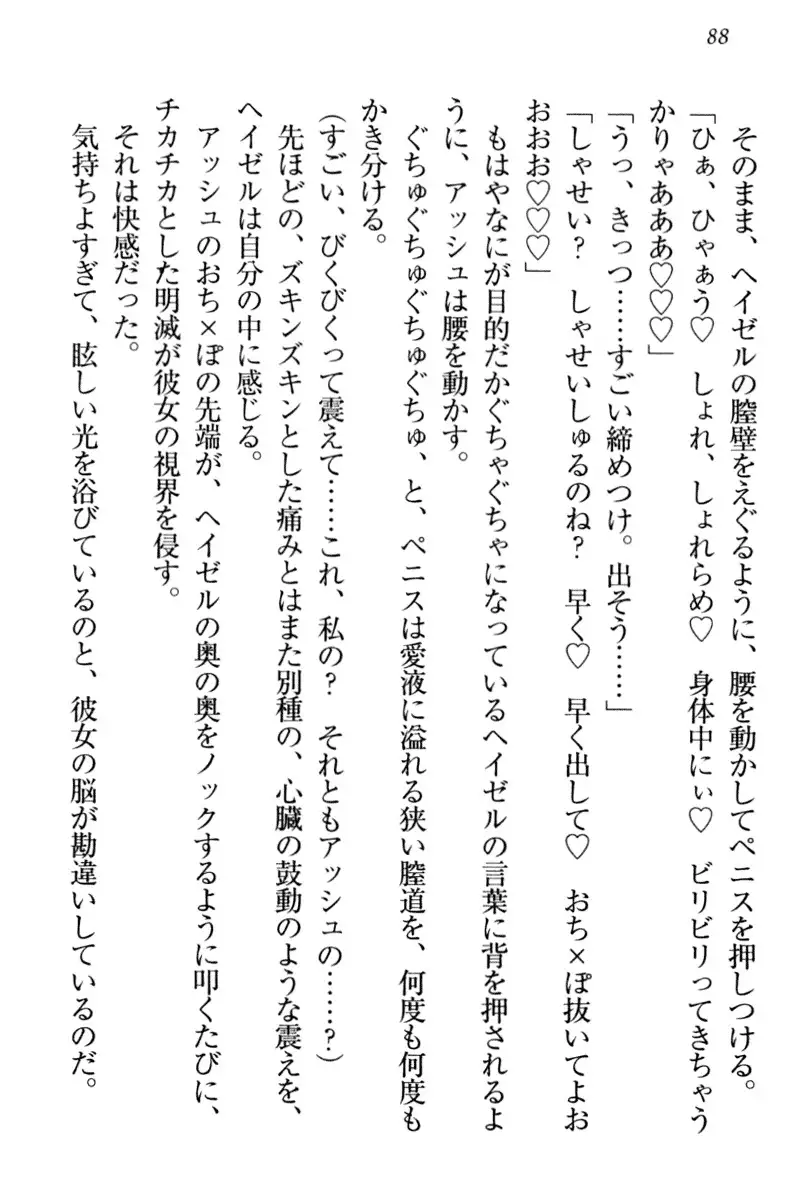 88
そのまま、ヘイゼルの膣壁をえぐるように、腰を動かしてペニスを押しつける。
「ひぁ、ひゃぁう♡　しょれ、しょれらめ♡　身体中にぃ♡　ビリビリってきちゃう
かりゃあああ♡♡♡」
「うっ、きっつ……すごい締めつけ。出そう……」
「しゃせい？　しゃせいしゅるのね？　早く♡　早く出して♡　おち×ぽ抜いてよお
おおお♡♡♡」
もはやなにが目的だかぐちゃぐちゃになっているヘイゼルの言葉に背を押されるよ
うに、アッシュは腰を動かす。
ぐちゅぐちゅぐちゅぐちゅ、と、ペニスは愛液に溢れる狭い膣道を、何度も何度も
かき分ける。
（すごい、びくびくって震えて……これ、私の？　それともアッシュの……？）
先ほどの、ズキンズキンとした痛みとはまた別種の、心臓の鼓動のような震えを、
ヘイゼルは自分の中に感じる。
アッシュのおち×ぽの先端が、ヘイゼルの奥の奥をノックするように叩くたびに、
チカチカとした明滅が彼女の視界を侵す。
それは快感だった。
気持ちよすぎて、眩しい光を浴びているのと、彼女の脳が勘違いしているのだ。